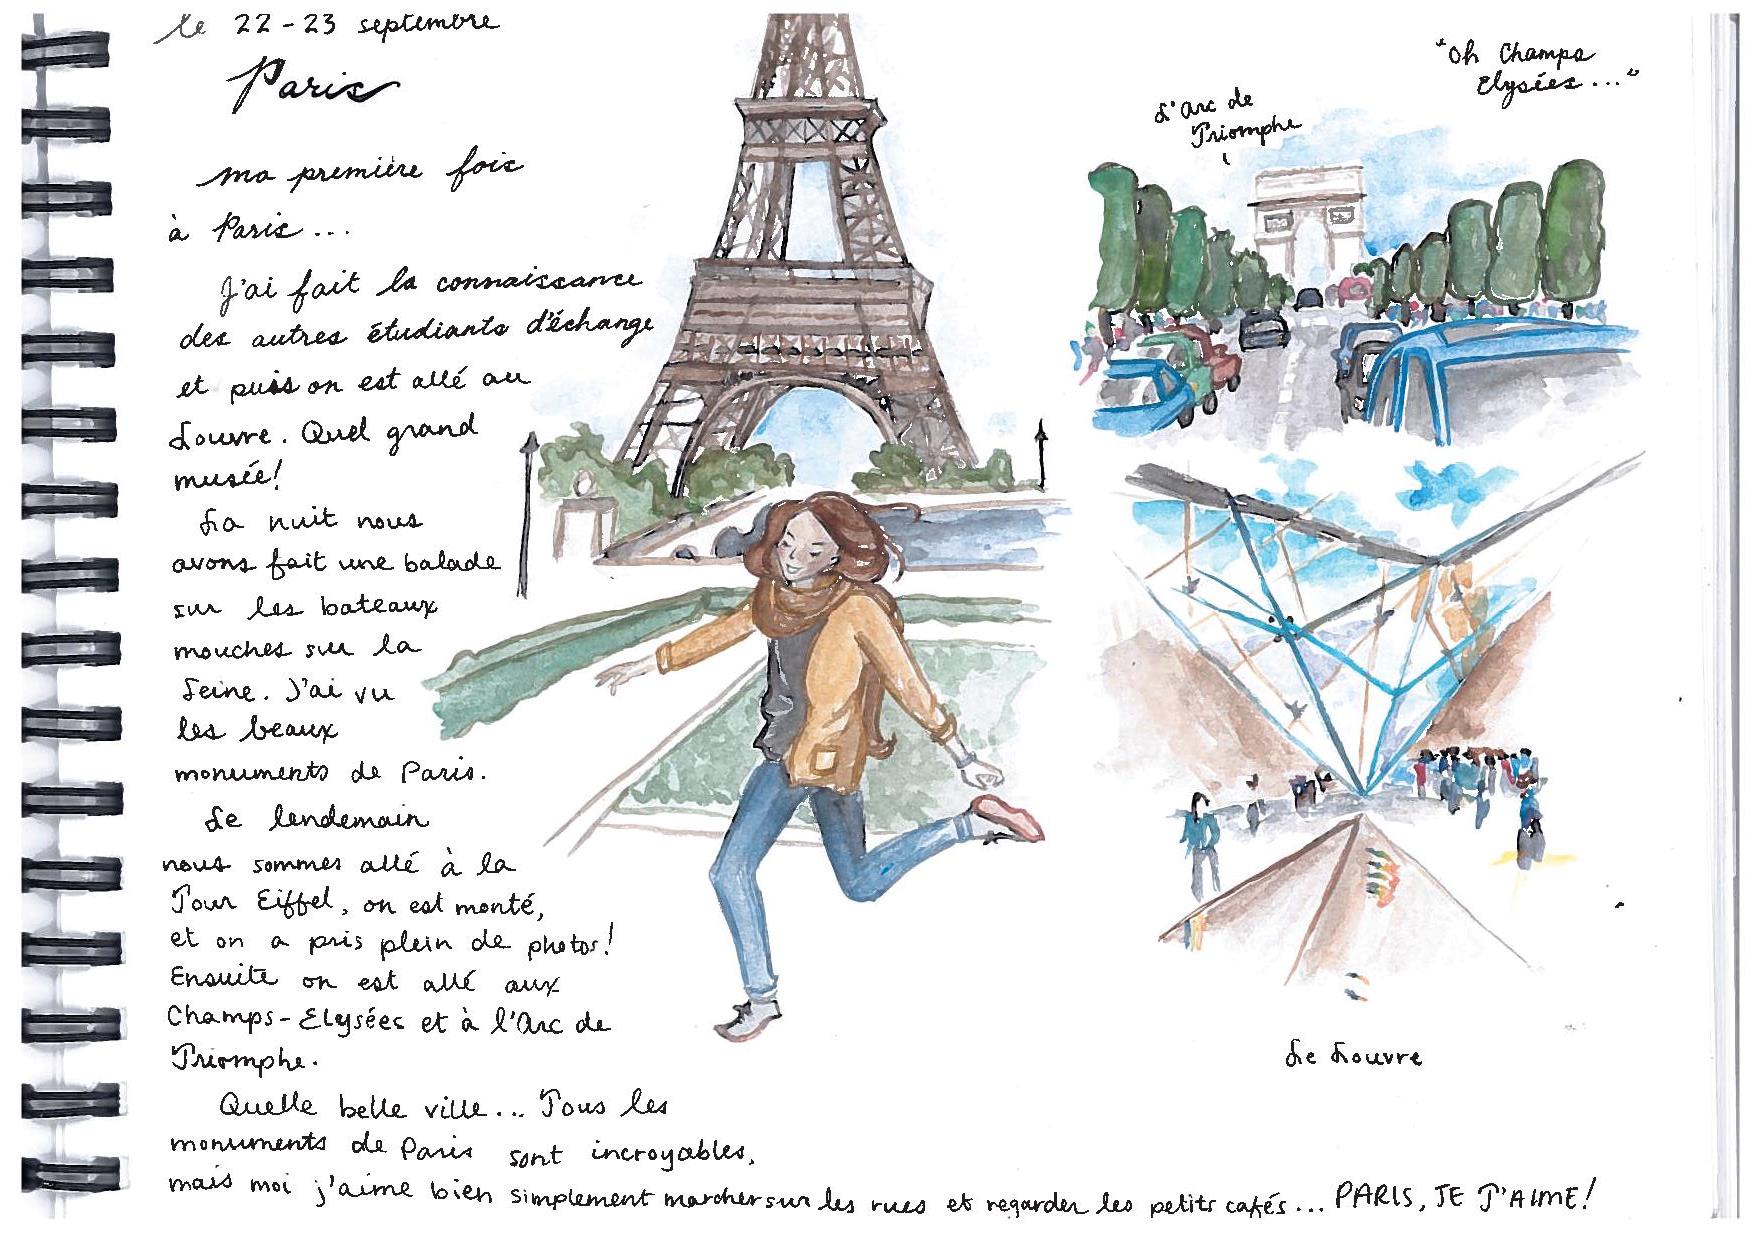 le 22-23 septembre
Paris
ma première fois
à Paris...
J'ai fait la connaissance
des autres étudiants d'échange
et puis on est allé au
Louvre. Quel grand
musée!
La nuit nous
avons fait une balade
sur les bateaux
mouches sur la
Seine. J'ai vu
les beaux
monuments de Paris.
Le lendemain
nous sommes allé à la
Tour Eiffel, on est monté,
et on a pris plein de photos!
Ensuite on est allé aux
Champs-Elysées et à l'Arc de
Triomphe.
Quelle belle ville... Tous les
monuments de Paris sont incroyables,
mais moi j'aime bien simplement marcher sur les rues et regarder les petits cafés... PARIS, JE T'AIME!
"Oh Champs
Elysées..."
L'Arc de
Triomphe
Le Louvre